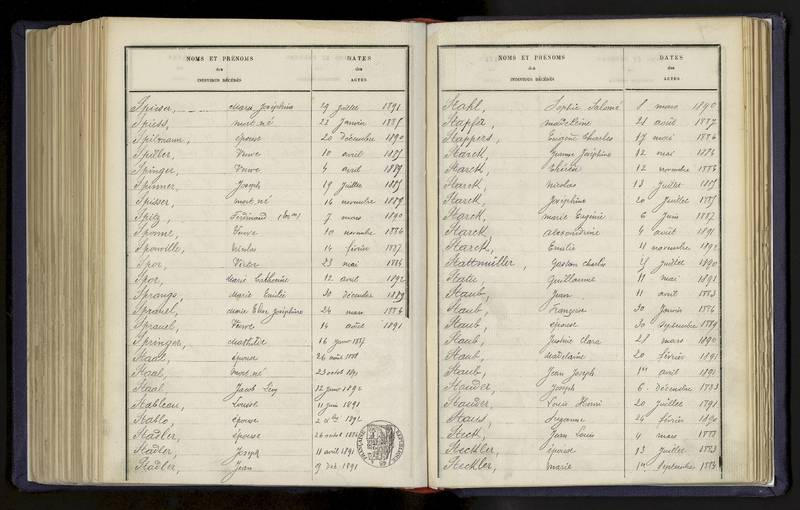 NOMS ET PRÉNOMS DATES
des des
INDIVIDUS DÉCÉDÉS ACTES
Spiesser, Marie Joséphine 29 Juillet 1891
Spiess, mort-né 22 Janvier
épouse 20 Décembre 1890
Spitller, Veuve 10 avril
Spinger, Veuve 4 avril
Spinner, Joseph 19 Juillet
Spisser, mort-né 16 novembre 1889
Spitz, Ferdinand 7 mars 1890
Veuve 10 novembre 1886
Sponville, Nicolas 14 février 1887
Spor, Victor 23 mai 1886
Spor, Marie Catherine 12 avril 1892
Marie Emilie 30 décembre 1889
Sprauel, Marie Elise Joséphine 24 mars 1886
Sprauel, Veuve 14 août 1891
Springer, Mathilde 16 1887
épouse 26 août
Staal, mort-né 23 octobre 1891
Staal, Jacob Levy 12 1892
Stableau, Louise 11 juin 1891
Stablo, épouse 1892
Stadler, épouse 26
Stadler, Joseph 11 avril 1891
Stadler, Jean 9 1891
NOMS ET PRÉNOMS DATES
des des
INDIVIDUS DÉCÉDÉS ACTES
Stahl, Sophie Salomé 8 mars 1890
Stapfa, Madeleine 21 août 1887
Stappers, Eugène Charles 17 mai 1886
Starck, Jeanne Joséphine 12 mai 1886
Starck, Thérèse 12 novembre 1886
Starck, Nicolas 13 Juillet
Starck, Joséphine 20 Juillet
Starck, Marie Eugénie 6 Juin 1887
Starck, Alexandrine 4 août 1891
Starck, Emilie 11 novembre 1892
Stattmüller, Gaston Charles Juillet 1890
Guillaume 11 mai 1891
Staub, Jean 11 avril 1883
Staub, Françoise 30 Janvier 1886
Staub, épouse 30 septembre 1889
Staub, Justine Clara 28 mars 1890
Staub, Madeleine 20 février 1891
Staub, Jean Joseph 1er avril 1891
Stauder, Joseph 6 Décembre 1883
Stauder, Louis Henri 20 Juillet 1891
Staus, Suzanne 24 février 1890
Steck, Jean Louis 4 mars
Steckler, épouse 13 Juillet 1883
Steckler, Marie 1er septembre